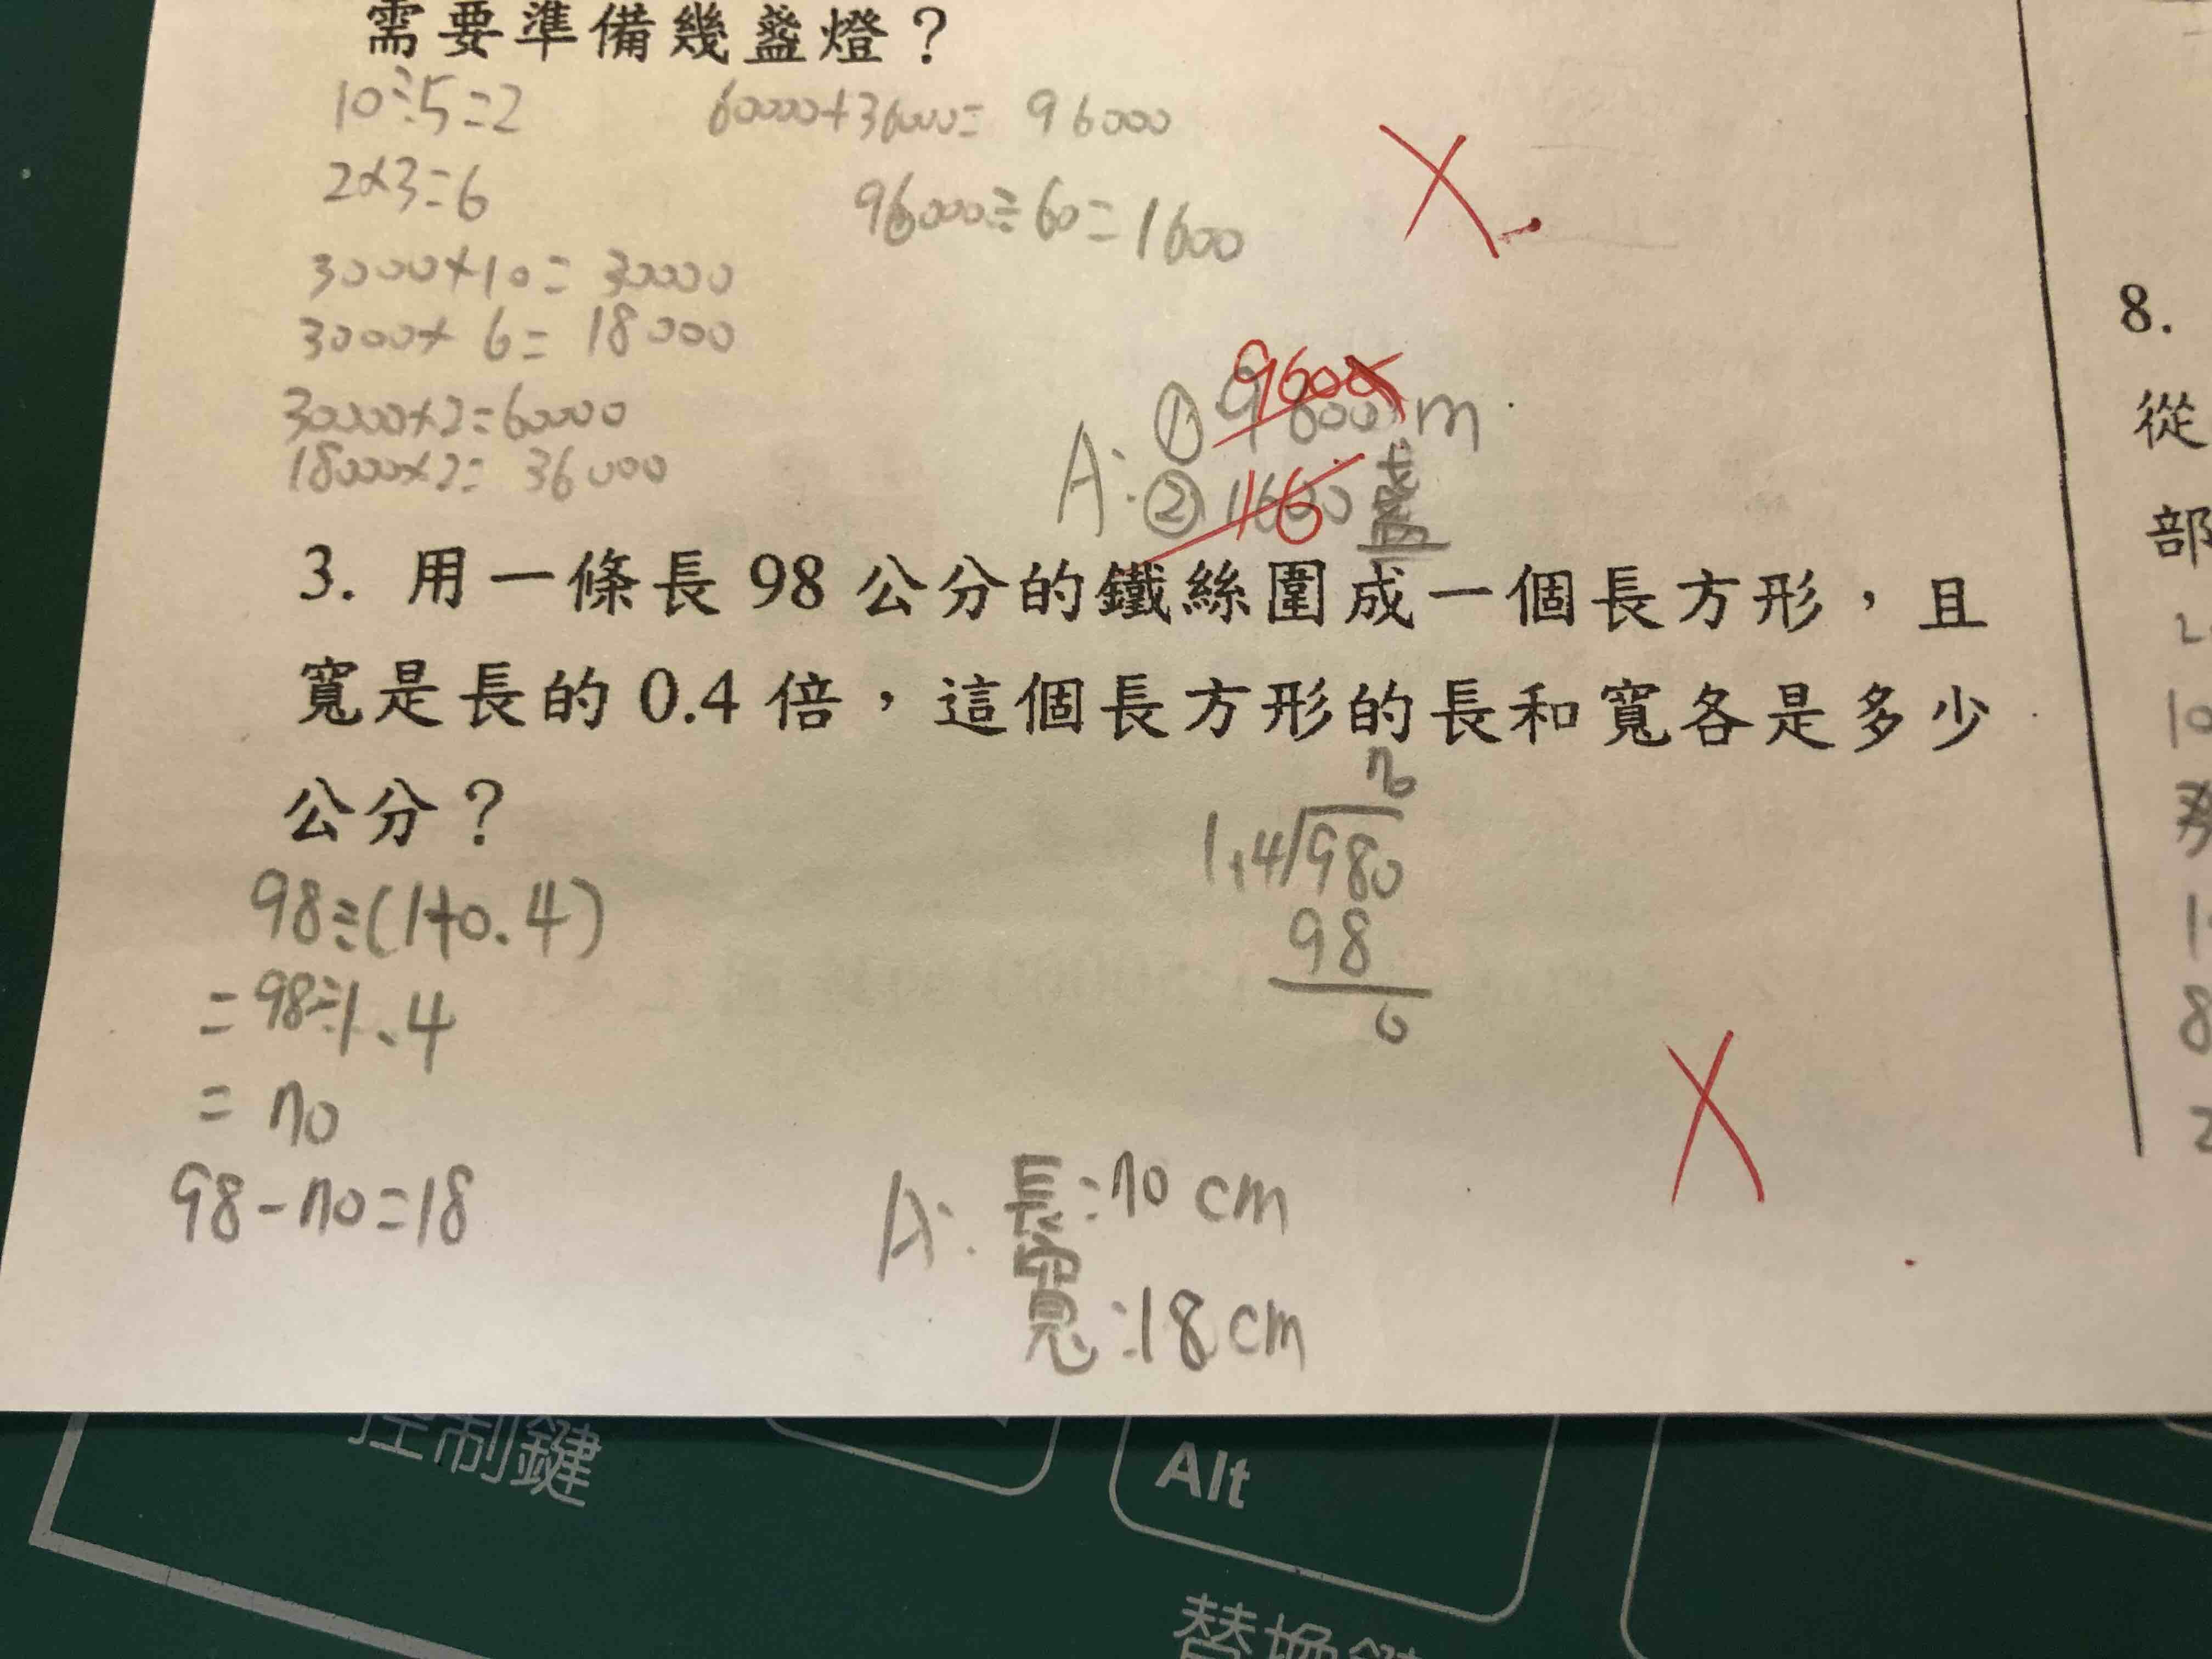 需要準備幾盞燈？
10÷5=2
2×3=6
3000×10=30000
3000×6=18000
30000×2=60000
18000×2=36000
60000+36000=96000
96000÷60=1600
A:①9600m
②1600盞
3. 用一條長 98 公分的鐵絲圍成一個長方形，且
寬是長的 0.4 倍，這個長方形的長和寬各是多少
公分？
98÷(1+0.4)
=98÷1.4
=70
98-70=18
70
1.4/980
98
0
A:長:70cm
寬:18cm
8.
從
部
控制鍵
Alt
替換鍵